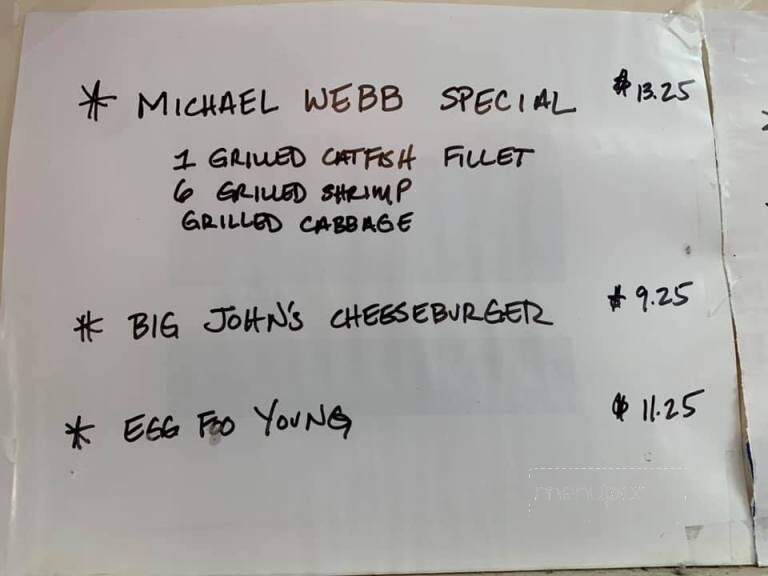 * MICHAEL WEBB SPECIAL $13.25
1 GRILLED CATFISH FILLET
6 GRILLED SHRIMP
GRILLED CABBAGE
* BIG JOHN'S CHEESEBURGER $9.25
* EGG FOO YOUNG $11.25
menupix